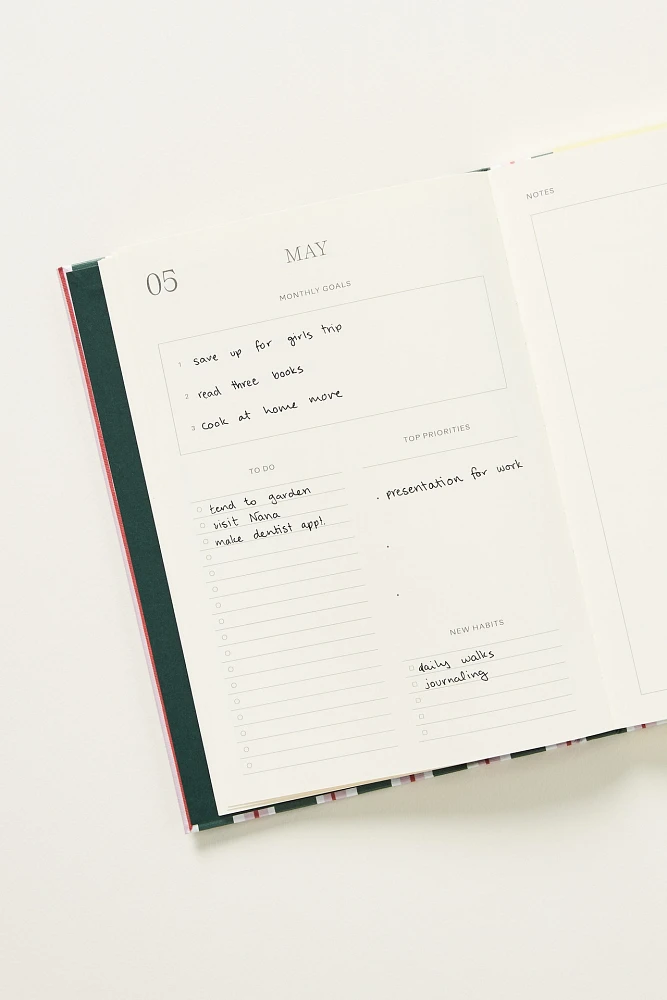 MAY
05
MONTHLY GOALS
1 save up for girls trip
2 read three books
3 cook at home more
TO DO
tend to garden
visit Nana
make dentist app!.
TOP PRIORITIES
. presentation for work
.
.
NEW HABITS
daily walks
journaling
NOTES